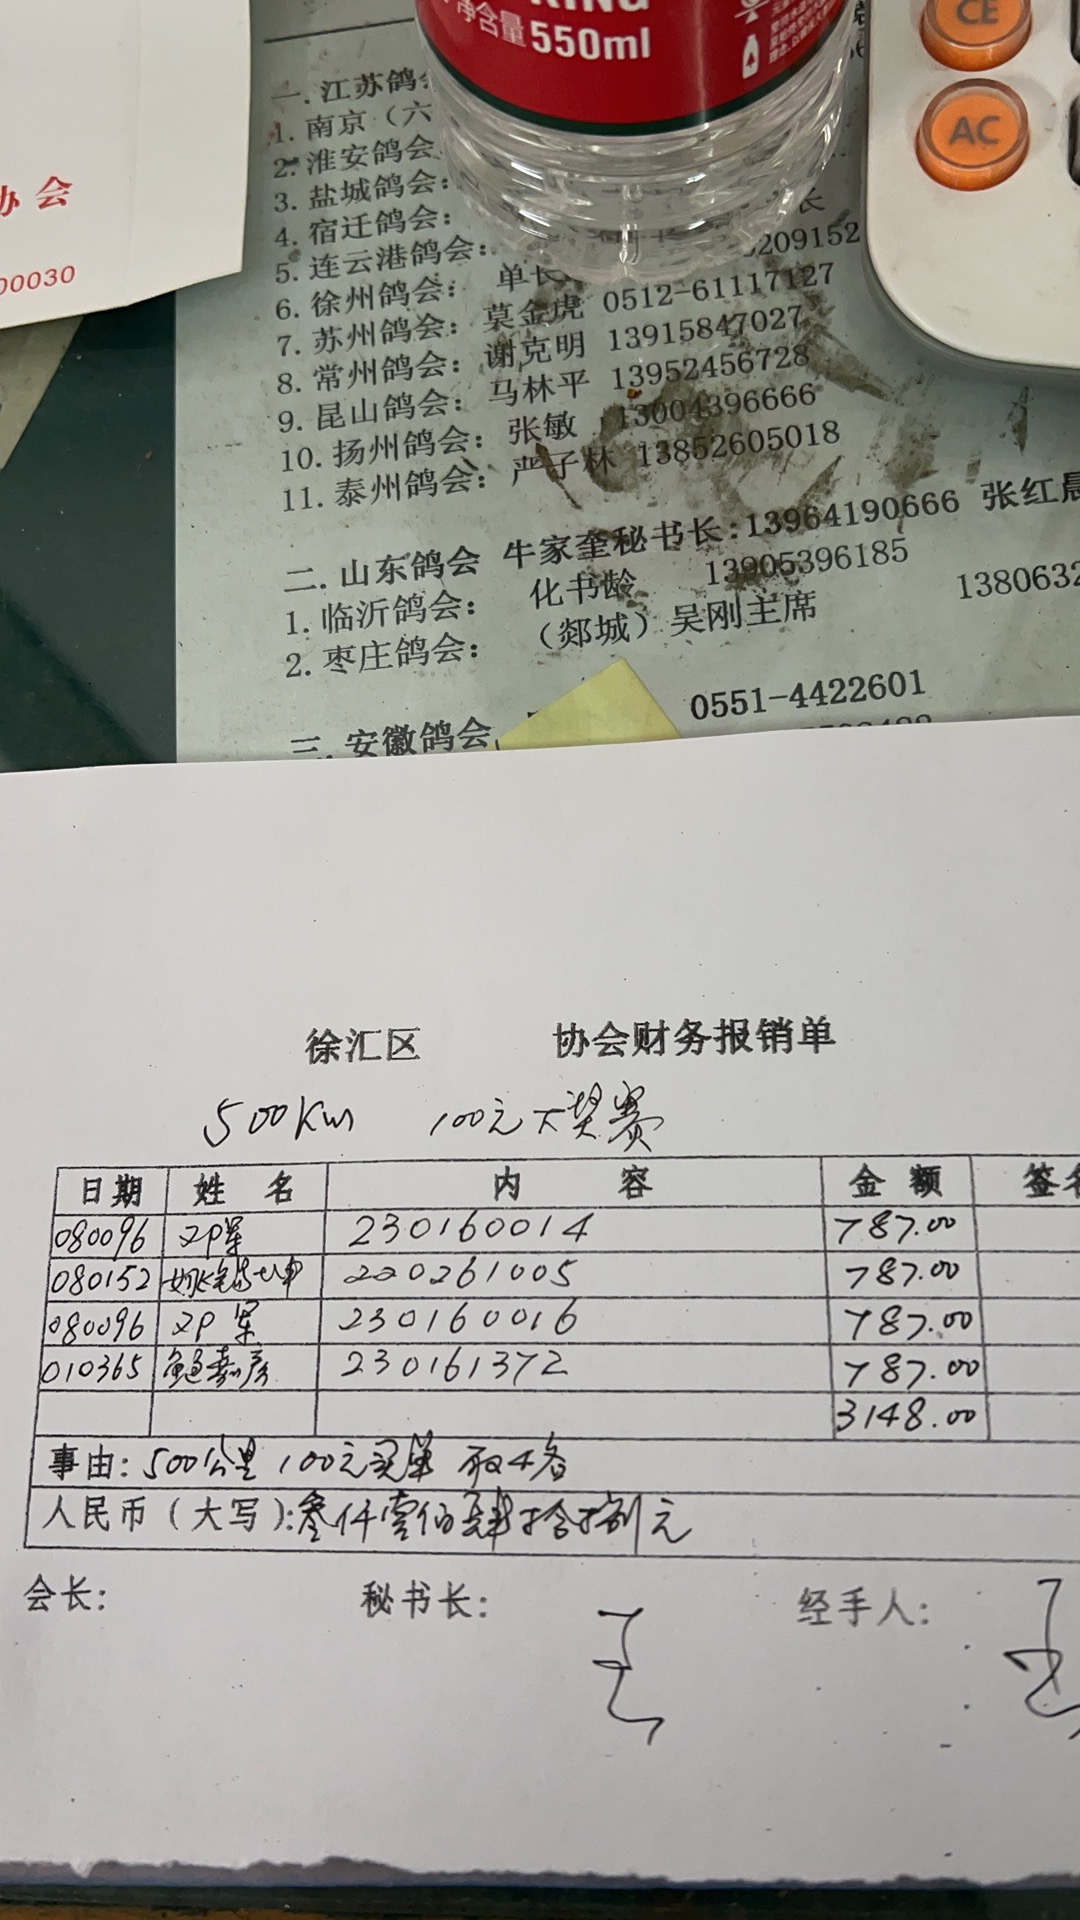 KING
净含量550ml
CE
AC
协会
00030
一.江苏鸽
1.南京（六
2.淮安鸽会
3.盐城鸽会：
4.宿迁鸽会：
5.连云港鸽会：
6.徐州鸽会： 单长 209152
7.苏州鸽会： 莫金虎 0512-61117127
8.常州鸽会： 谢克明 13915847027
9.昆山鸽会： 马林平 13952456728
10.扬州鸽会： 张敏 13004396666
11.泰州鸽会： 严子林 13852605018
二.山东鸽会 牛家奎秘书长:13964190666 张红晨
1.临沂鸽会： 化书龄 13905396185
2.枣庄鸽会： （郯城）吴刚主席 1380632
三.安徽鸽会 0551-4422601
徐汇区 协会财务报销单
500Km 100元大奖赛
日期 姓名 内容 金额 签名
080096 230160014 787.00
080152 220261005 787.00
080096 230160016 787.00
010365 鲍嘉彦 230161372 787.00
3148.00
事由：500公里 100元买单 取4名
人民币（大写）：叁仟壹佰肆拾捌元
会长： 秘书长： 经手人：